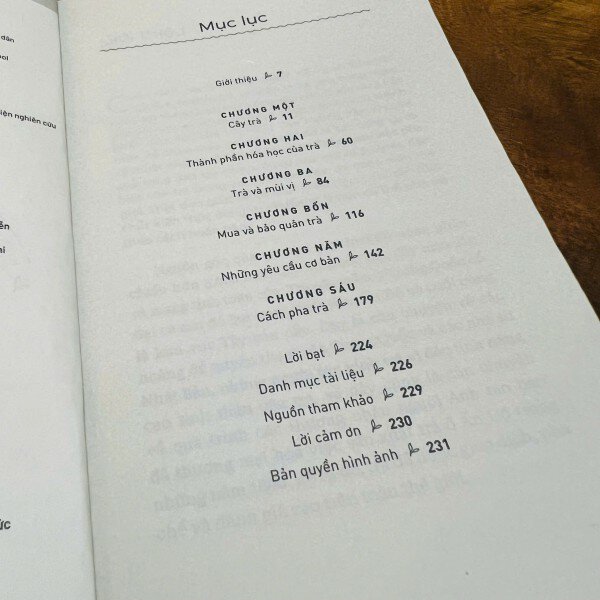 dân
iện nghiên cứu
ễn
ỨC
Mục lục
Giới thiệu 7
CHƯƠNG MỘT
Cây trà 11
CHƯƠNG HAI
Thành phần hóa học của trà 60
CHƯƠNG BA
Trà và mùi vị 84
CHƯƠNG BỐN
Mua và bảo quản trà 116
CHƯƠNG NĂM
Những yêu cầu cơ bản 142
CHƯƠNG SÁU
Cách pha trà 179
Lời bạt 224
Danh mục tài liệu 226
Nguồn tham khảo 229
Lời cảm ơn 230
Bản quyền hình ảnh 231